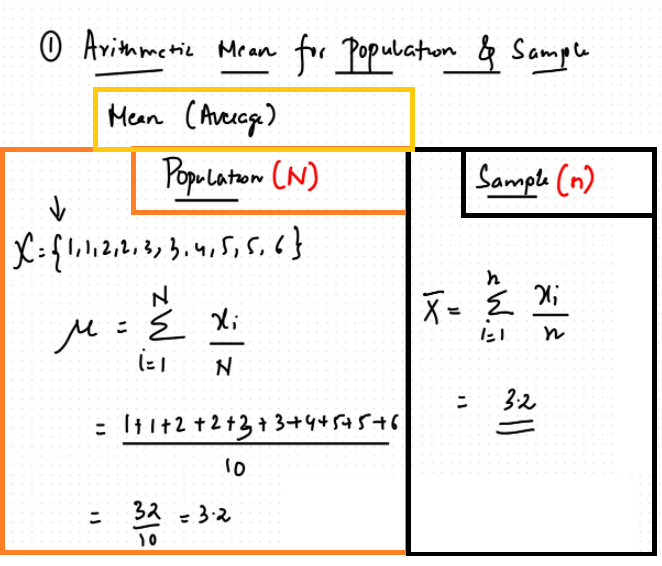 ① Arithmetic Mean for Population & Sample
Mean (Average)
Population (N)
X = {1,1,2,2,3,3,4,5,5,6}
μ = N Σ i=1 xi / N
= 1+1+2+2+3+3+4+5+5+6 / 10
= 32 / 10 = 3.2
Sample (n)
X̄ = n Σ i=1 xi / n
= 3.2